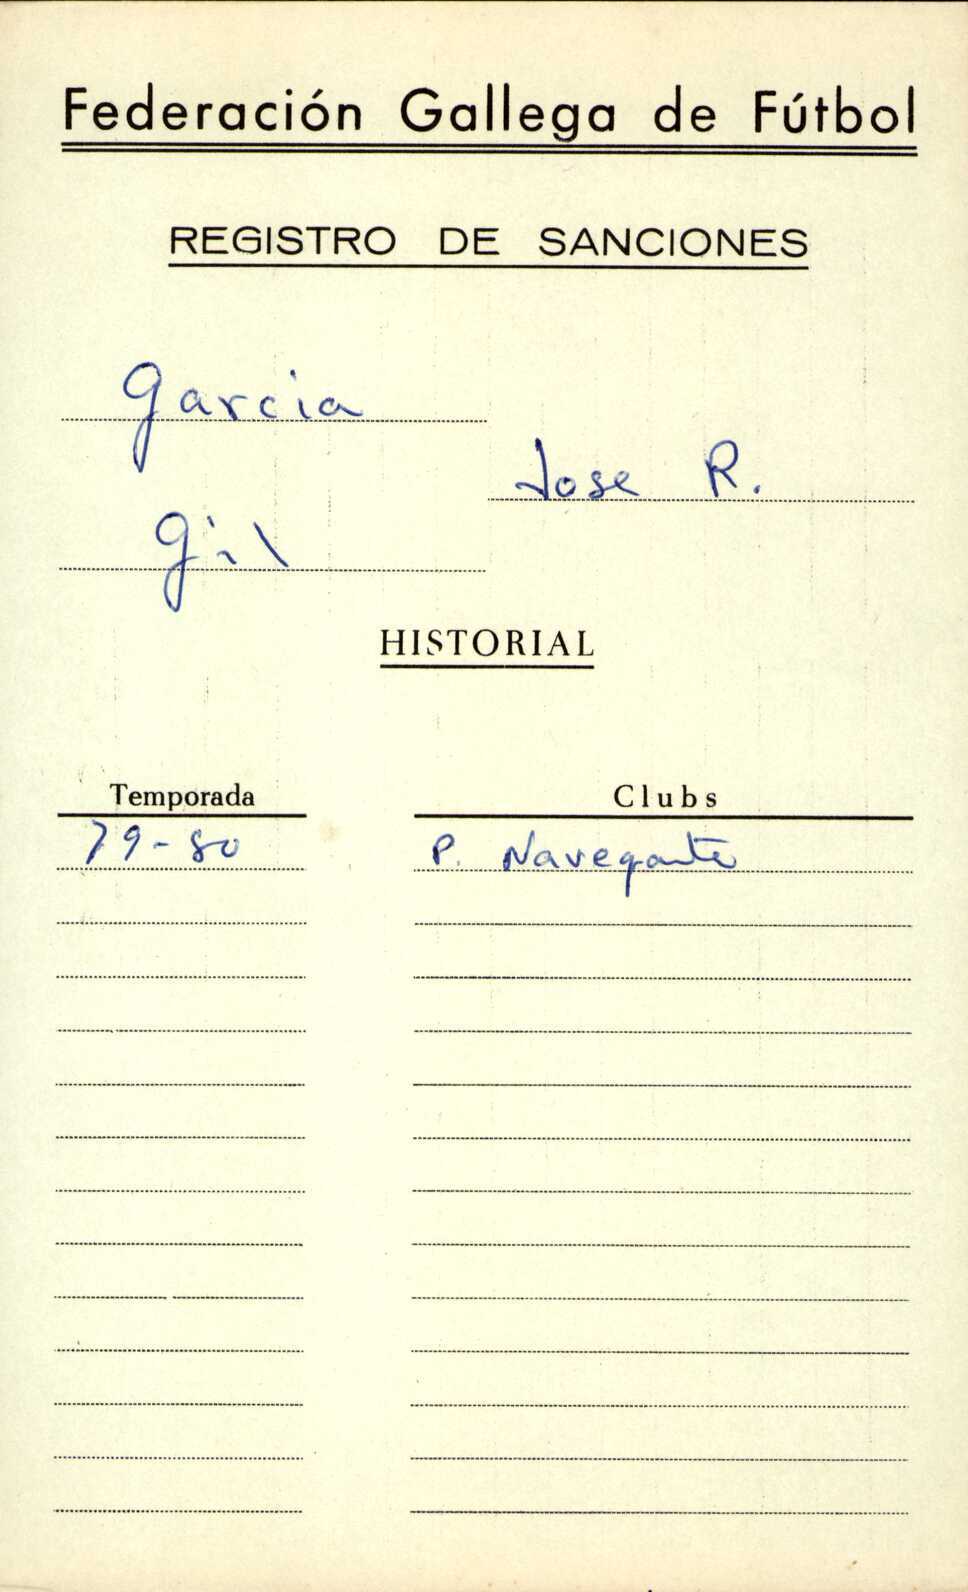 Federación Gallega de Fútbol
REGISTRO DE SANCIONES
Garcia
Jose R.
Gil
HISTORIAL
Temporada Clubs
79-80 P. Navegante